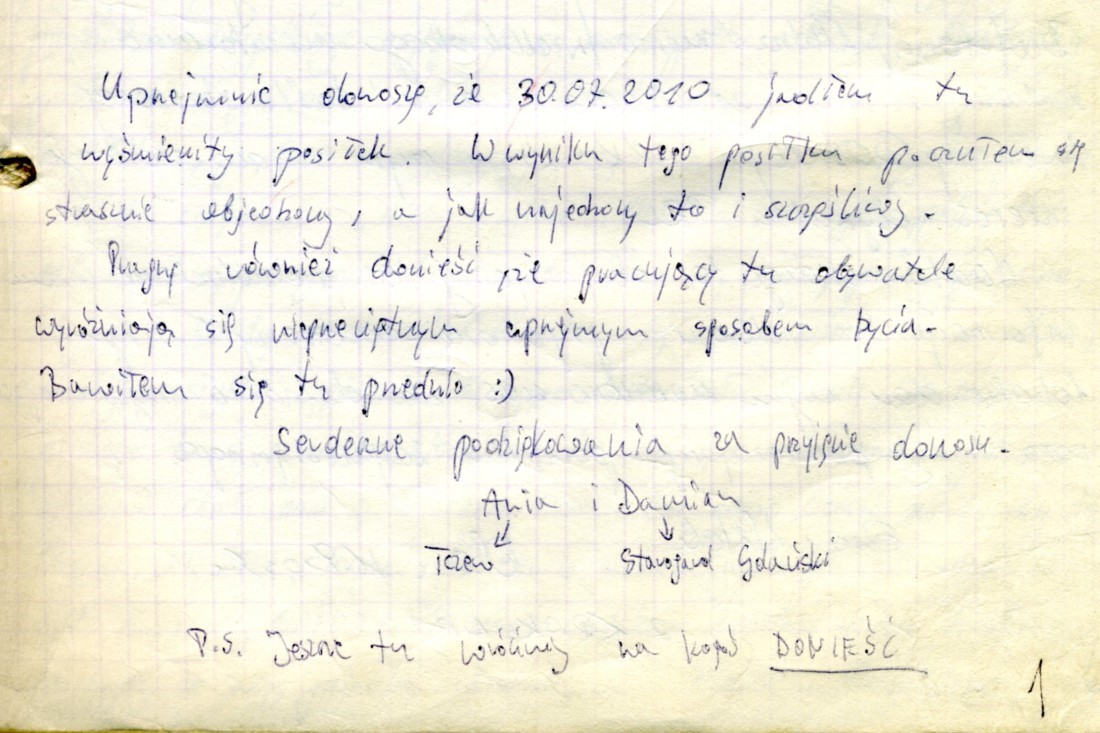 Uprzejmie donoszę, że 30.07.2010 jadłem tu
wyśmienity posiłek. W wyniku tego posiłku poczułem się
strasznie objedzony, a jak najedzony to i szczęśliwy.
Pragnę również donieść, że pracujący tu obywatele
wyróżniają się nieprzeciętnym uprzejmym sposobem bycia.
Bawiłem się tu przednio :)
Serdeczne podziękowania za przyjęcie donosu.
Ania i Damian
Tczew Starogard Gdański
P.S. Jeszcze tu wrócimy na kogoś DONIEŚĆ
1